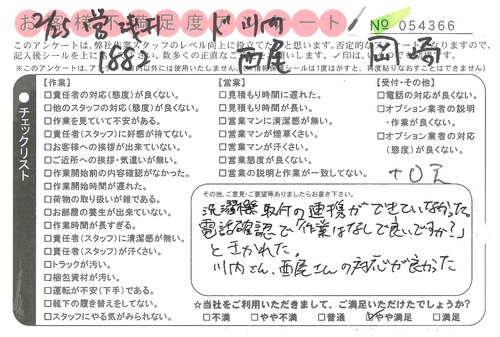 お客様不満足度アンケート
№ 054366
2/25 営 浅井 ド 川内
(883) 西尾 岡崎
このアンケートは、弊社作業スタッフのレベル向上に役立てたいと思います。否定的な
記入後シールを上に
※このアンケートは、
チェックリスト
【作業】
□責任者の対応(態度)が良くない。
□他のスタッフの対応(態度)が良くない。
□作業を見ていて不安がある。
□責任者(スタッフ)に好感が持てない。
□お客様への挨拶が出来ていない。
□ご近所への挨拶・気遣いが無い。
□作業開始前の内容確認がなかった。
□作業開始時間が遅れた。
□荷物の取り扱いが雑である。
□お部屋の養生が出来ていない。
□作業時間が長すぎる。
□責任者(スタッフ)に清潔感が無い。
□責任者(スタッフ)が汗くさい。
□トラックが汚い。
□梱包資材が汚い。
□運転が不安(下手)である。
□靴下の履き替えをしてない。
□スタッフにやる気がみられない。
【営業】
□見積もり時間に遅れた。
□見積もり時間が長い。
□営業マンに清潔感が無い。
□営業マンが煙草くさい。
□営業マンが汗くさい。
□営業態度が良くない。
□営業の説明と作業が一致してない。
【受付・その他】
□電話の対応が良くない。
□オプション業者の説明
・作業が良くない。
□オプション業者の対応
(態度)が良くない。
その他、ご意見・ご要望等ありましたらお書き下さい。
洗濯機取付の連携ができていなかった。
電話確認で「作業はなしで良いですか?」
ときかれた。
川内さん、西尾さんの対応が良かった
☆当社をご利用いただきまして、ご満足いただけたでしょうか?
□不満 □やや不満 □普通 ☑やや満足 □満足